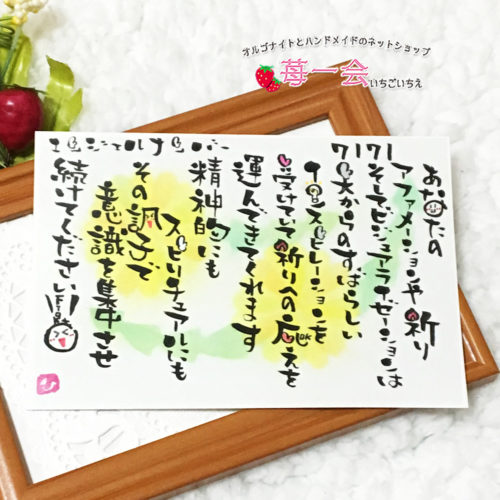 オルゴナイトとハンドメイドのネットショップ
苺一会
いちごいちえ
エンジェルナンバー
7171
あなたの
アファメーションや祈り
そしてビジュアライゼーションは
天からのすばらしい
インスピレーションを
受けていて祈りへの応えを
運んできてくれます
精神的にも
スピリチュアルにも
その調子で
意識を集中させ
続けてください!!